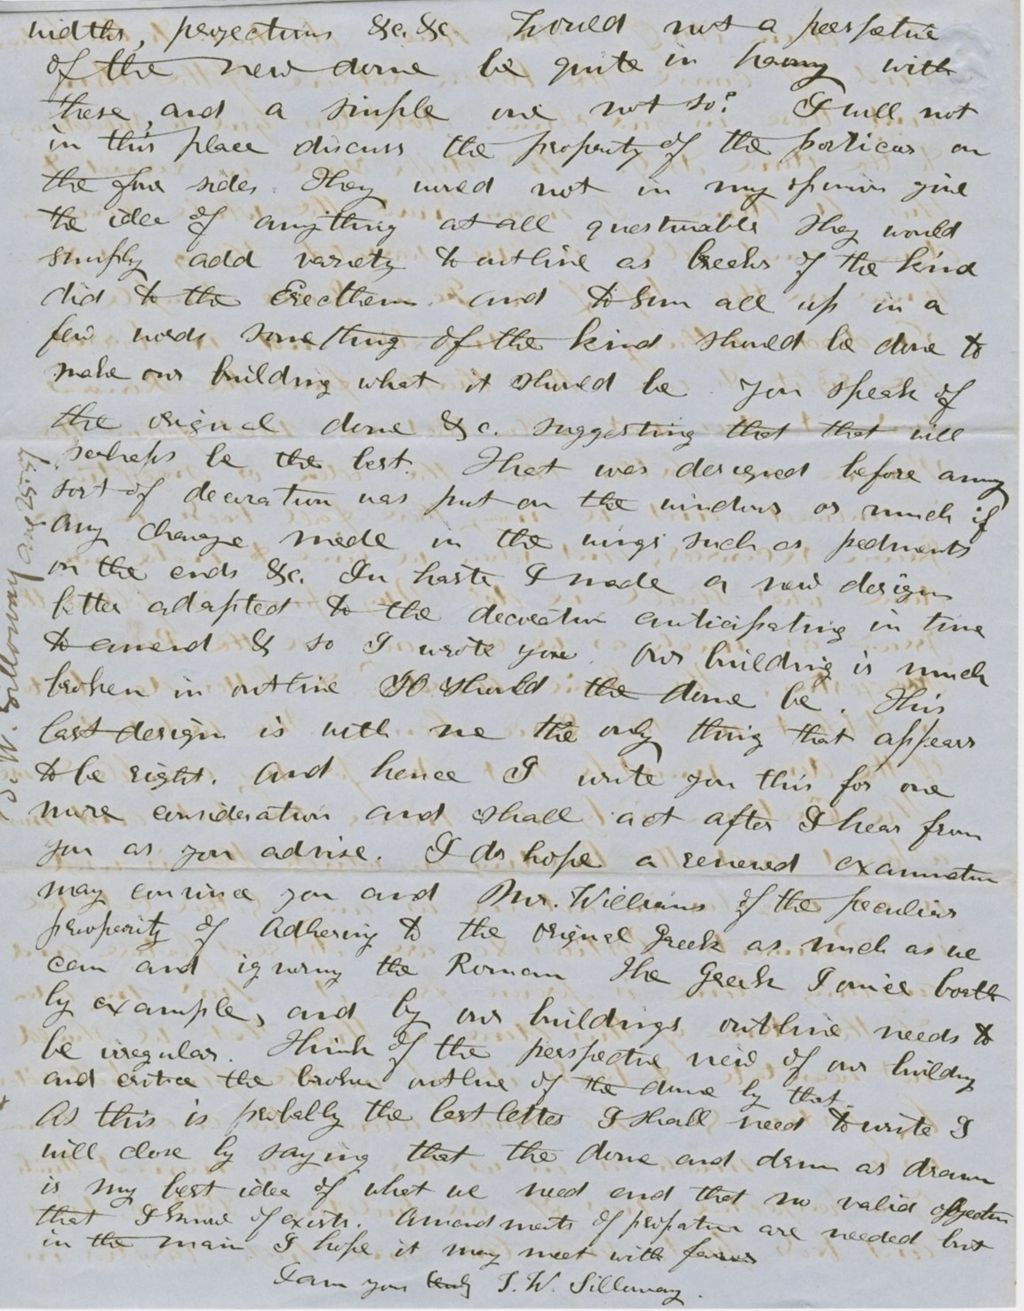 widths, projections &c. &c. Would not a perspective
of the new dome be quite in harmy with
these, and a simple one not so? I will not
in this place discuss the propriety of the porticos on
the four sides. They would not in my opinion give
the idea of anything at all questionable They would
simply add variety to outline as breaks of the kind
did to the Erectheum. And to sum all up in a
few words something of the kind should be done to
make our building what it should be. You speak of
the original dome &c. suggesting that that will
perhaps be the best. That was designed before any
sort of decoration was put on the windows or much if
any change made in the wings such as pediments
on the ends &c. In haste I made a new design
better adapted to the decoration anticipating in time
to amend & so I wrote you. Our building is much
broken in outline so should the dome be. This
last design is with me the only thing that appears
to be right. And hence I write you this for one
more consideration and shall act after I hear from
you as you advise. I do hope a renewed examination
may convince you and Mr. Williams of the peculiar
propriety of adhering to the original Greek as much as we
can and ignoring the Roman The Greek both
by example, and by our buildings outline needs to
be irregular. Think of the perspective view of our building
and critice the broken outline of the dome by that.
As this is probably the last letter I shall need to write I
will close by saying that the dome and drum as drawn
is my best idea of what we need and that no valid objection
that I know of exists. Amendments of proportion are needed but
in the main I hope it may meet with favor
I am you truly T. W. Silloway.
T. W. Silloway